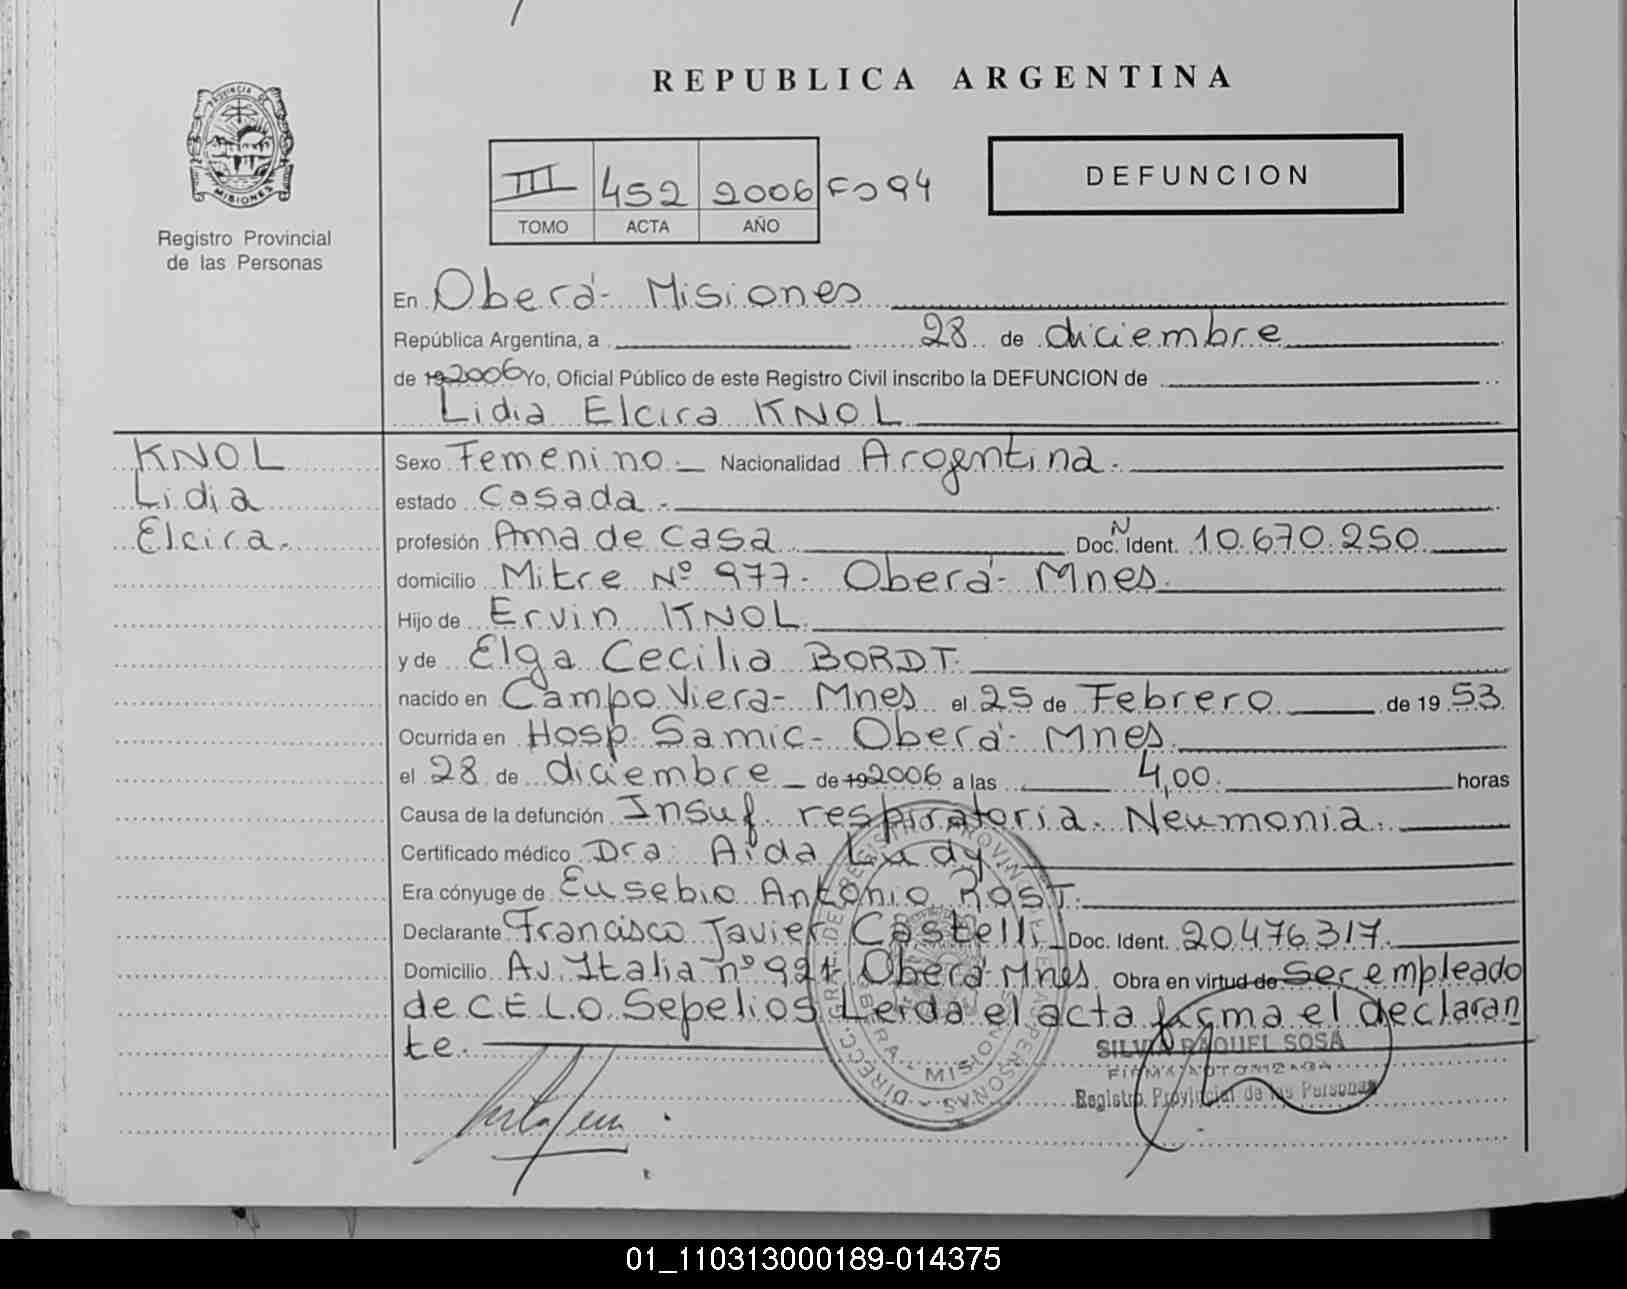 REPUBLICA ARGENTINA
PROVINCIA DE
MISIONES
Registro Provincial
de las Personas
III 452 2006 Fo 94
TOMO ACTA AÑO
DEFUNCION
En Oberá- Misiones
República Argentina, a 28 de diciembre
de 19 2006 Yo, Oficial Público de este Registro Civil inscribo la DEFUNCION de
Lidia Elcira KNOL
KNOL
Lidia
Elcira.
Sexo Femenino. Nacionalidad Argentina.
estado Casada.
profesión Ama de casa Doc. N Ident. 10.670.250
domicilio Mitre Nº 977- Oberá- Mnes.
Hijo de Ervin KNOL.
y de Elga Cecilia BORDT.
nacido en Campo Viera- Mnes el 25 de Febrero de 19 53
Ocurrida en Hosp. Samic- Oberá- Mnes.
el 28 de diciembre de 19 2006 a las 4,00. horas
Causa de la defunción Insuf. respiratoria. Neumonia.
Certificado médico Dra. Aida
Era cónyuge de Eusebio Antonio ROST.
Declarante Francisco Javier Castelli Doc. Ident. 20476317.
Domicilio Av. Italia nº Oberá- Mnes. Obra en virtud de Ser empleado
de C.E.L.O. Sepelios Leida el acta firma el declaran
te.
SILVIA RAQUEL SOSA
FIRMA AUTORIZADA
Registro Provincial de las Personas
01_110313000189-014375